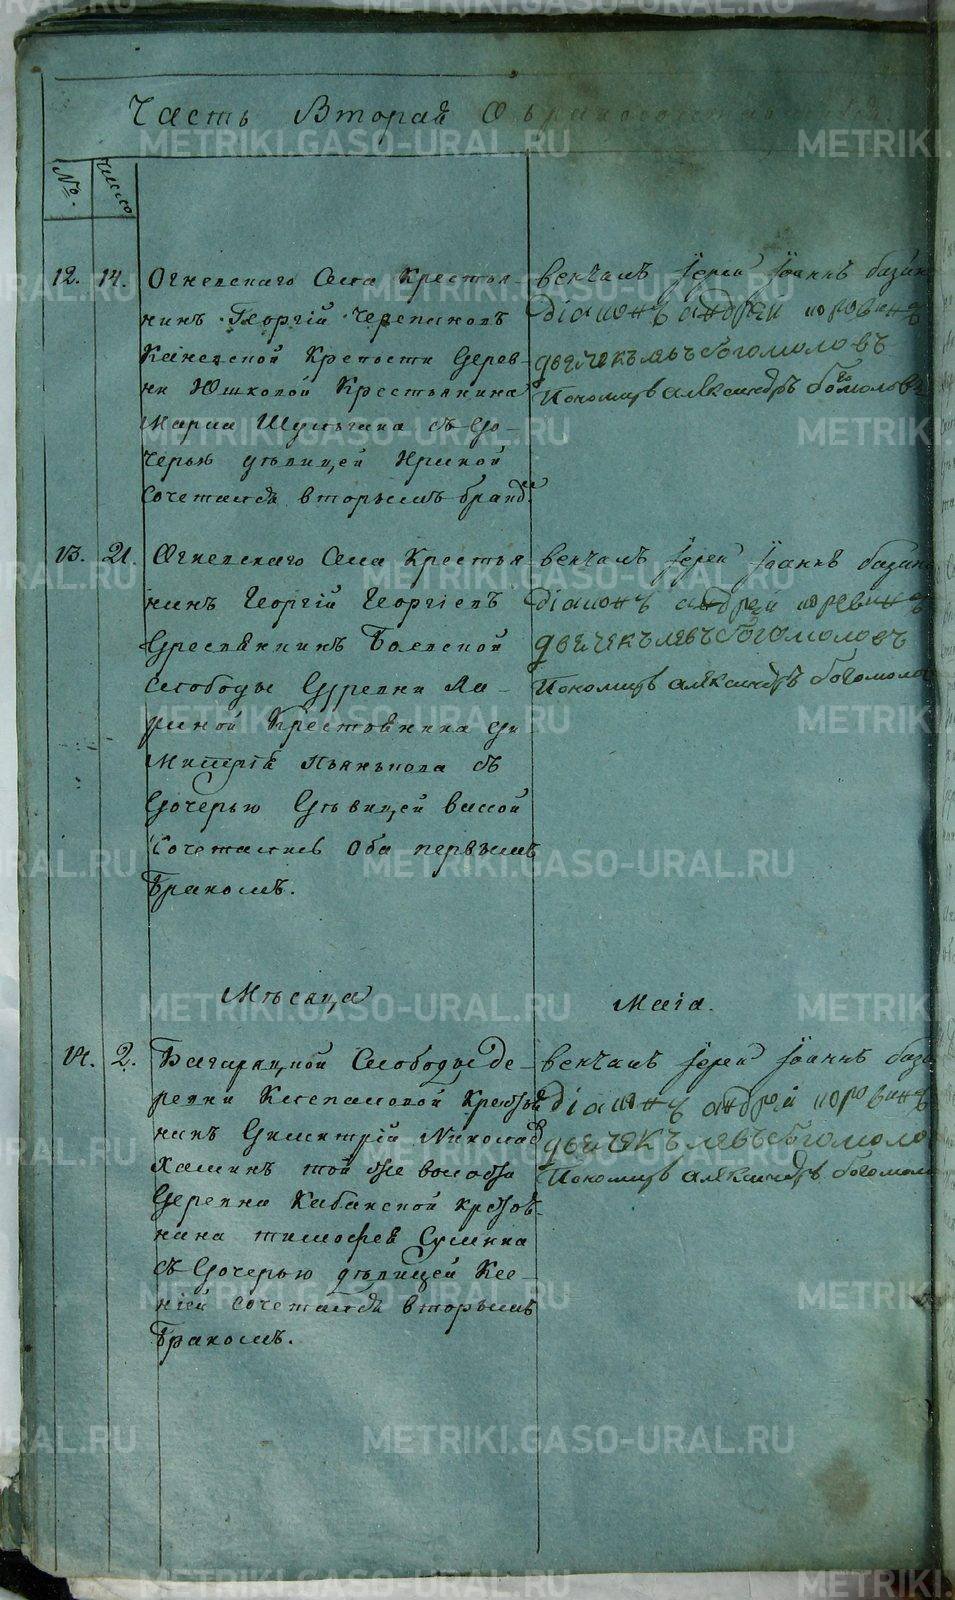 Часть Вторая О бракосочетав
№.
число
12. 14. Огневскаго села Крестья-
нинъ Георгій Черепановъ
Каневской Крепости Дерев-
ни Юшковой Крестьянина
Марка Шулгина съ до-
черью дѣвицей Ириной
сочетался вторымъ брако
венчалъ Іерей Іоаннъ базин
діаконъ андрей коровинъ
дьячекъ левъ богомоловъ
Пономарь александръ богомоловъ
13. 21. Огневскаго села Крестья
нинъ Георгій Георгіевъ
Дресвянкинъ Баевской
слободы Деревни Ла-
риной Крестьянина Ди
митрія Пьянкова съ
Дочерью Дѣвицей васой
Сочетались оба первымъ
бракомъ.
венчалъ Іерей Іоаннъ базин
діаконъ андрей коровинъ
дьячекъ левъ богомоловъ
Пономарь александръ богомоло
Мѣсяца Маіа.
14. 2. Багаряцкой Слободы де-
ревни Колпаковой крестья
нинъ Димитрій
той же волости
Деревни Кабанской кресть
нина тимофея Сулина
съ Дочерью дѣвицей Ксе-
ніей сочетался вторымъ
бракомъ.
венчалъ Іерей Іоаннъ баз
діаконъ андрей коровинъ
дьячекъ левъ богомоло
Пономарь александръ богомоло
METRIKI.GASO-URAL.RU